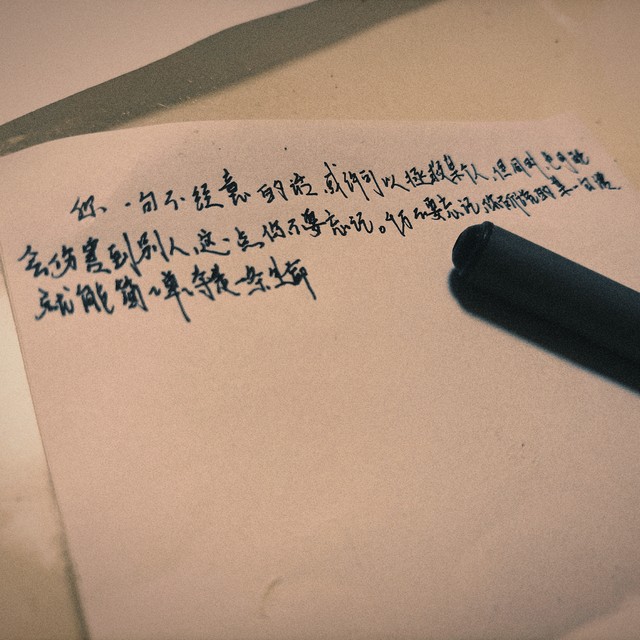 你一句不经意的话或许可以拯救某人,但同时也可能
会伤害到别人这一点你不要忘记。仍不要忘记你所说的某一句话
就能简单夺走一条生命